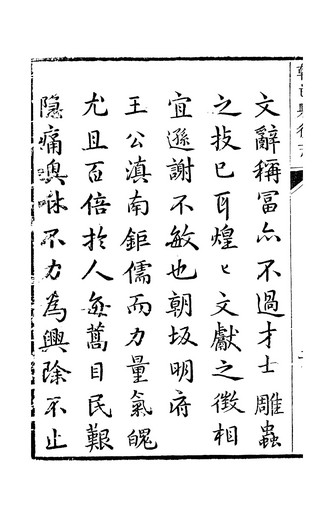 文辭稱冨亦不過才士雕蟲
之技已耳煌〻文獻之徴相
宜遜謝不敏也朝坂明府
王公滇南鉅儒而力量氣魄
尤且百倍於人每蒿目民艱
隐痛輿咻不力為興除不止